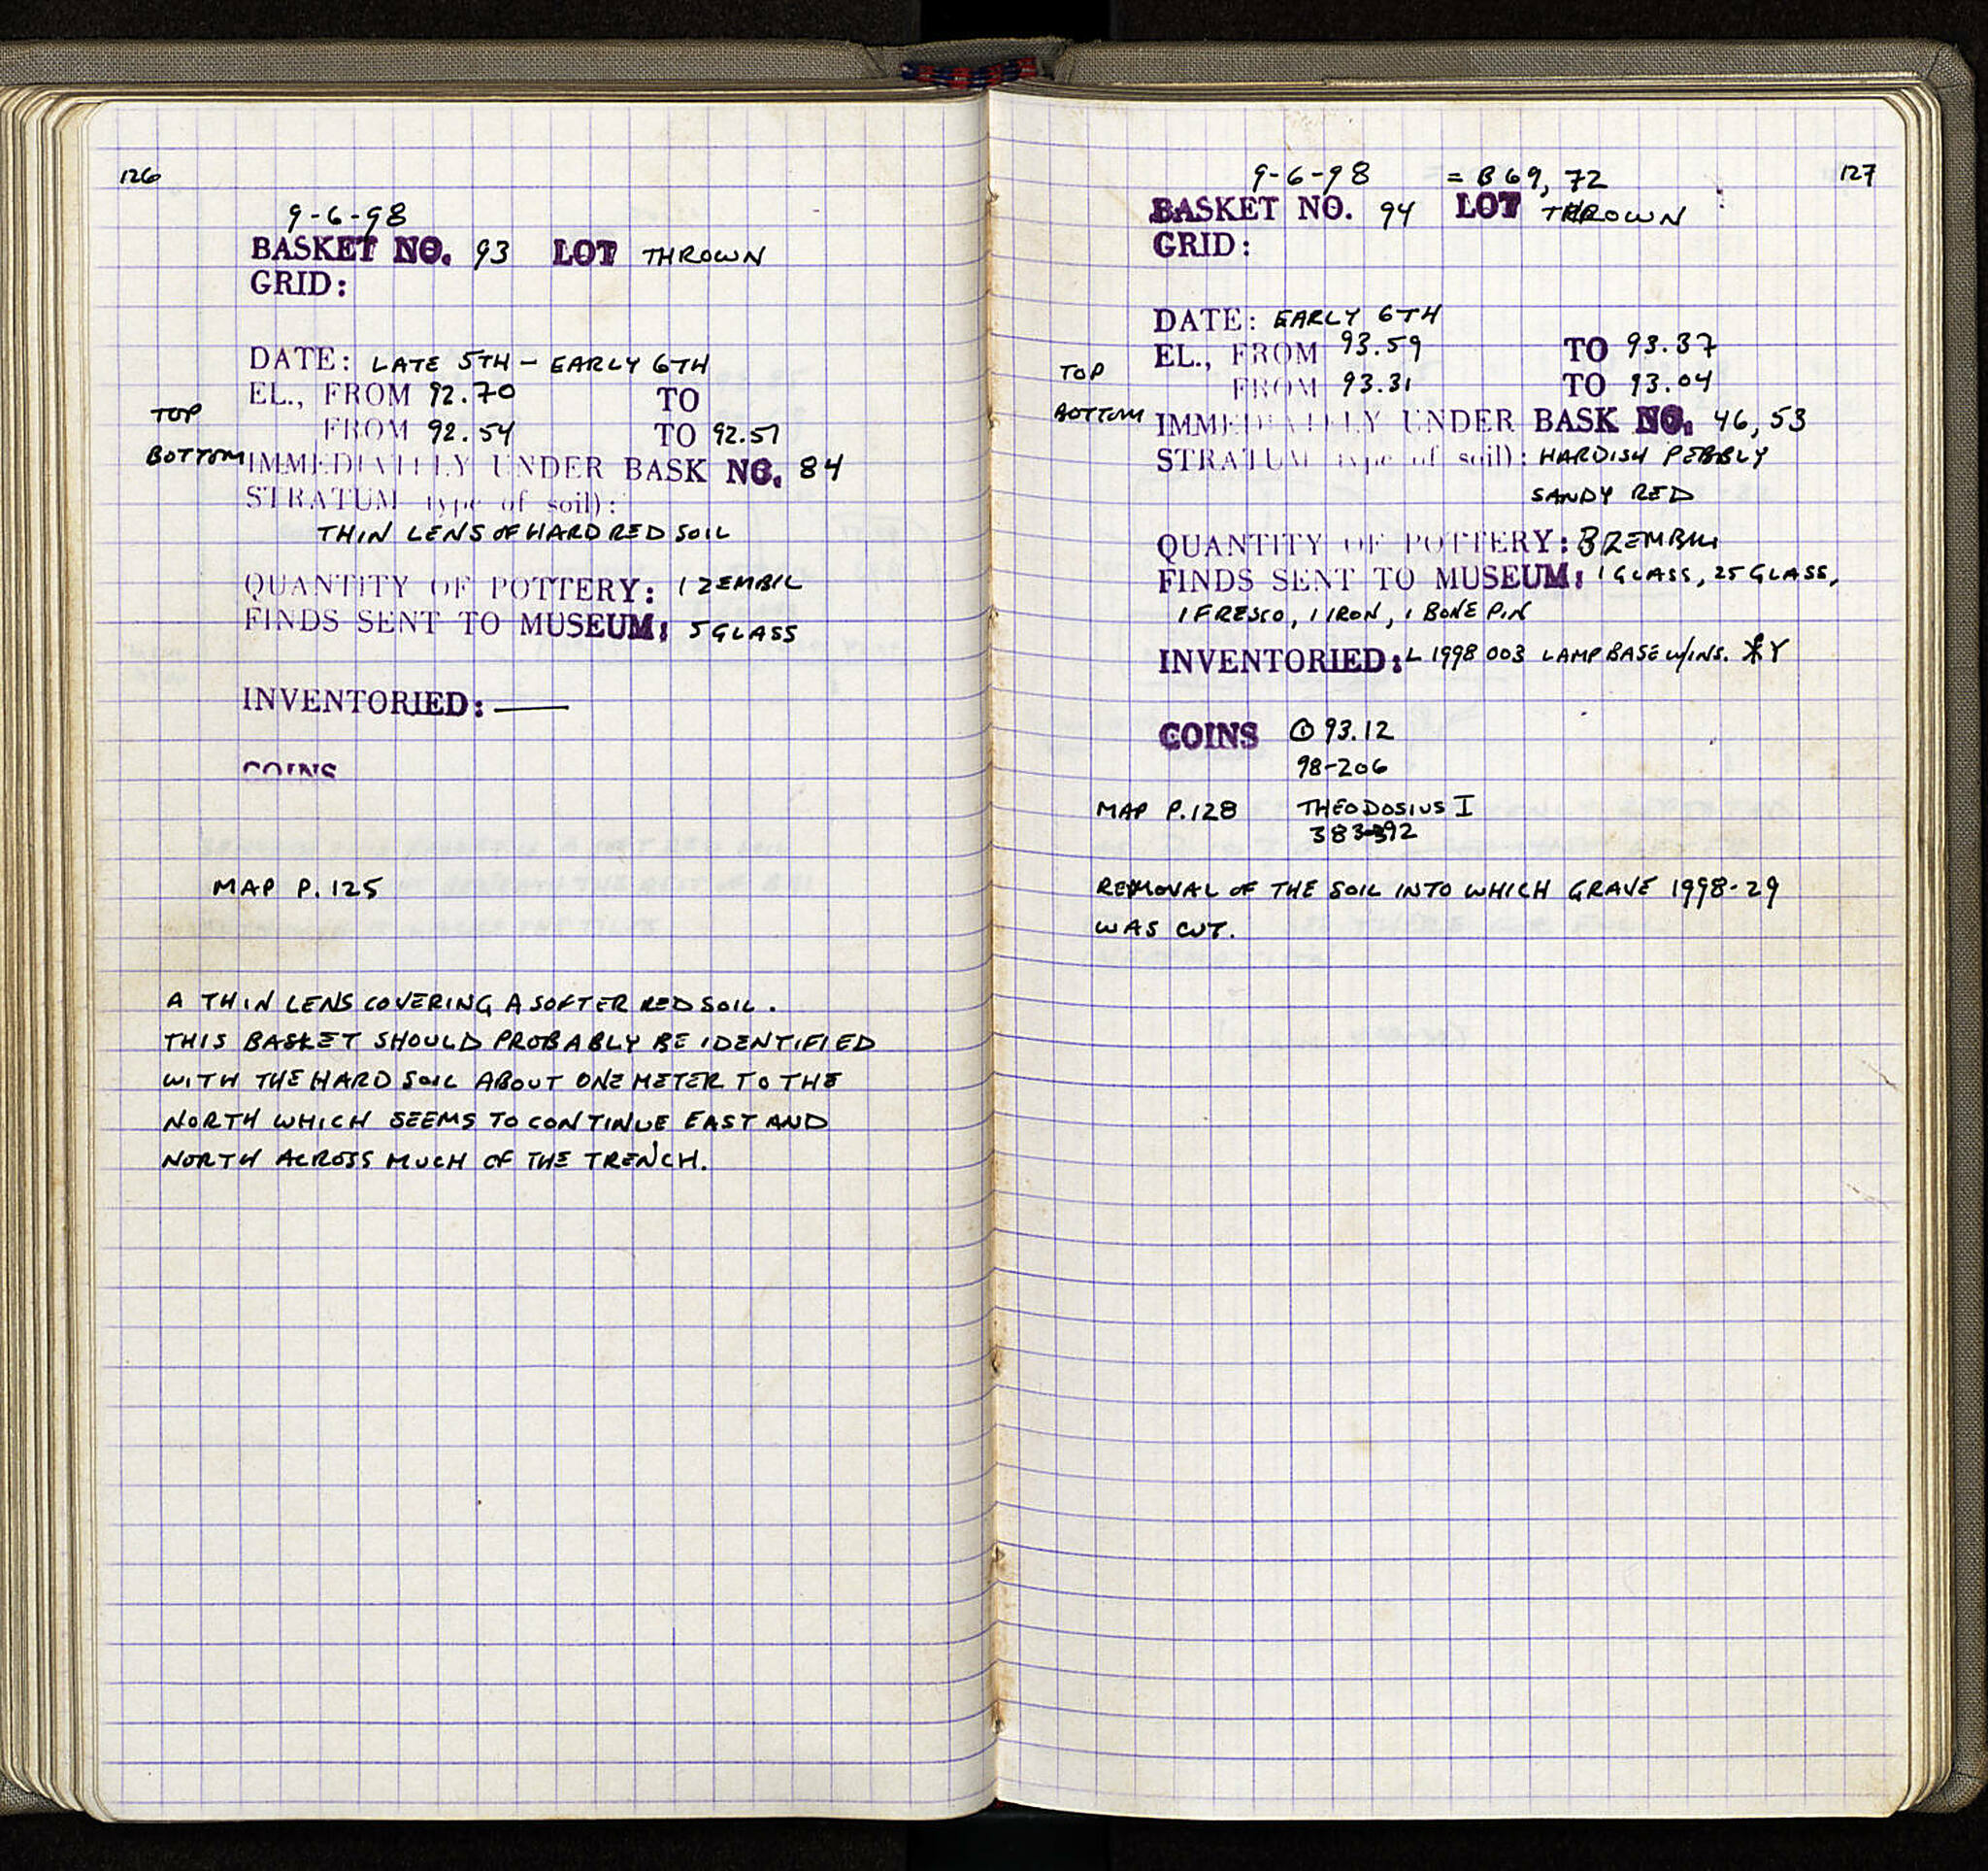 126
9-6-98
BASKET NO. 93 LOT THROWN
GRID:
DATE: LATE 5TH - EARLY 6TH
TOP EL., FROM 92.70 TO
BOTTOM FROM 92.54 TO 92.51
IMMEDIATELY UNDER BASK NO. 84
STRATUM type of soil):
THIN LENS OF HARD RED SOIL
QUANTITY OF POTTERY: 1 ZEMBIL
FINDS SENT TO MUSEUM: 5 GLASS
INVENTORIED: —
COINS
MAP P. 125
A THIN LENS COVERING A SOFTER RED SOIL.
THIS BASKET SHOULD PROBABLY BE IDENTIFIED
WITH THE HARD SOIL ABOUT ONE METER TO THE
NORTH WHICH SEEMS TO CONTINUE EAST AND
NORTH ACROSS MUCH OF THE TRENCH.
127
9-6-98 = B 69, 72
BASKET NO. 94 LOT THROWN
GRID:
DATE: EARLY 6TH
TOP EL., FROM 93.59 TO 93.37
BOTTOM FROM 93.31 TO 93.04
IMMEDIATELY UNDER BASK NO. 46, 53
STRATUM type of soil): HARDISH PEBBLY
SANDY RED
QUANTITY OF POTTERY: 3 ZEMBILI
FINDS SENT TO MUSEUM: 1 GLASS, 25 GLASS,
1 FRESCO, 1 IRON, 1 BONE PIN
INVENTORIED: L 1998 003 LAMP BASE W/INS.
COINS ① 93.12
98-206
MAP P. 128 THEODOSIUS I
383-392
REMOVAL OF THE SOIL INTO WHICH GRAVE 1998-29
WAS CUT.